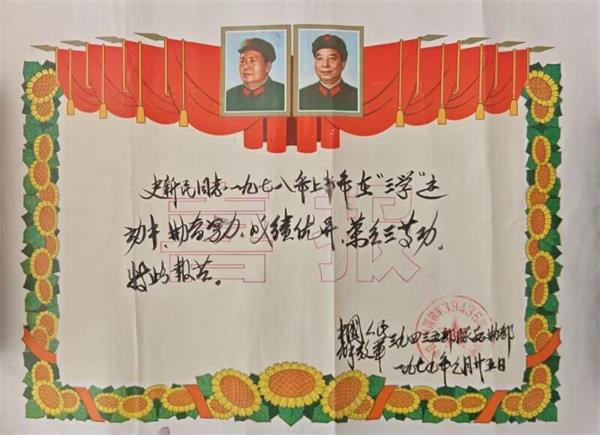 史新民同志一九七八年上半年在“三学”运
动中，勤奋努力，成绩优异，荣立三等功，
特此报喜。
喜报
中国人民
解放军三九四三五部队后勤部
39435
一九七八年 月廿五日